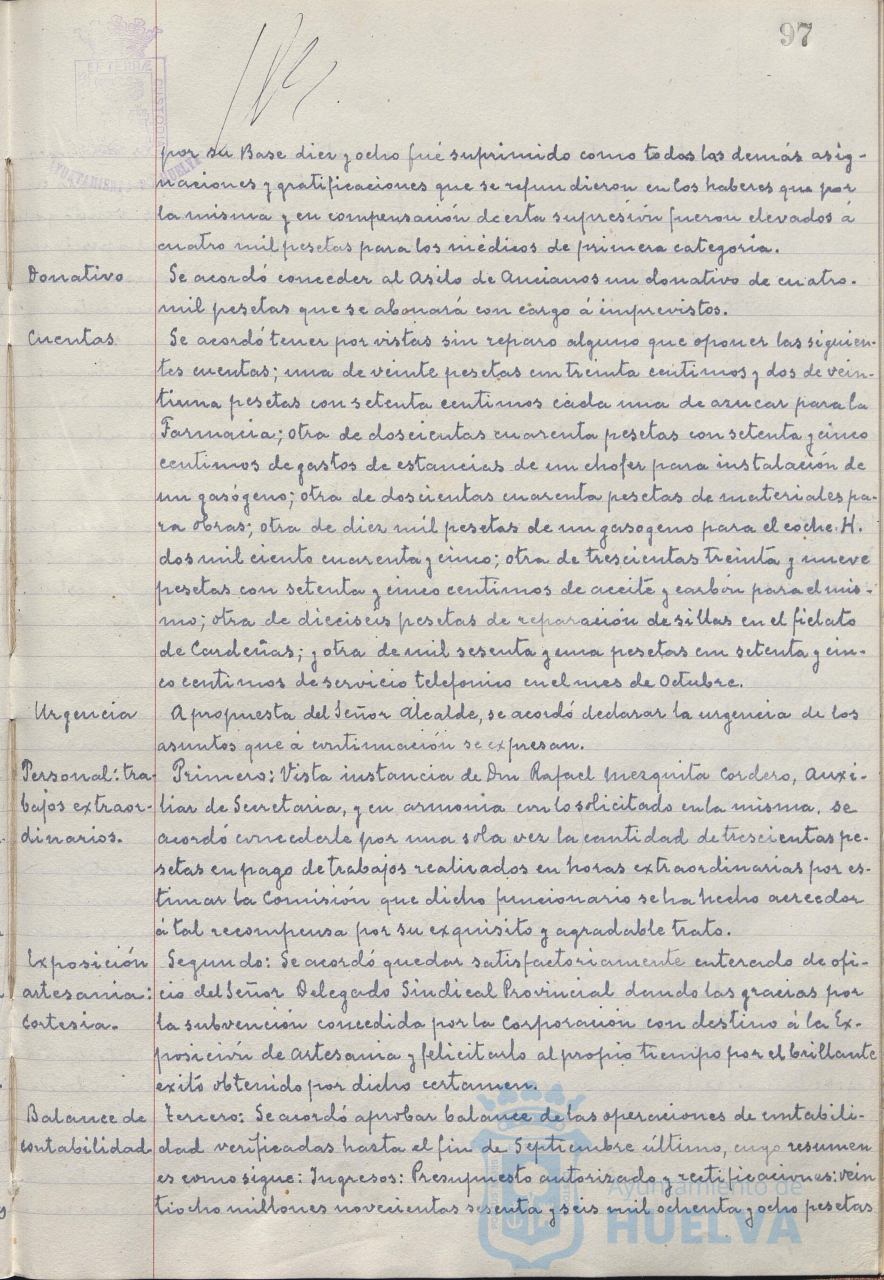 97
PORTUS MARIS ET TERRÆ CUSTODIA
AYUNTAMIENTO DE HUELVA
por su Base diez y ocho fué suprimido como todas las demás asig-
naciones y gratificaciones que se refundieron en los haberes que por
la misma y en compensación de esta supresión fueron elevados á
cuatro mil pesetas para los médicos de primera categoria.
Donativo
Se acordó conceder al Asilo de Ancianos un donativo de cuatro.
mil pesetas que se abonará con cargo á imprevistos.
Cuentas
Se acordó tener por vistas sin reparo alguno que oponer las siguien-
tes cuentas; una de veinte pesetas con treinta centimos y dos de vein-
tiuna pesetas con setenta centimos cada una de azucar para la
Farmacia; otra de doscientas cuarenta pesetas con setenta y cinco
centimos de gastos de estancias de un chofer para instalación de
un gasógeno; otra de doscientas cuarenta pesetas de materiales pa-
ra obras; otra de diez mil pesetas de un gasogeno para el coche. H.
dos mil ciento cuarenta y cinco; otra de trescientas treinta y nueve
pesetas con setenta y cinco centimos de aceite y carbón para el mis-
mo; otra de dieciseis pesetas de reparación de sillas en el fielato
de Cardeñas; y otra de mil sesenta y una pesetas con setenta y cin-
co centimos de servicio telefonico en el mes de Octubre.
Urgencia
A propuesta del Señor Alcalde, se acordó declarar la urgencia de los
asuntos que á continuación se expresan.
Personal: tra-
bajos extraor-
dinarios.
Primero: Vista instancia de Don Rafael Mezquita Cordero, Auxi-
liar de Secretaria, y en armonia con lo solicitado en la misma, se
acordó concederle por una sola vez la cantidad de trescientas pe-
setas en pago de trabajos realizados en horas extraordinarias por es-
timar la Comisión que dicho funcionario se ha hecho acreedor
á tal recompensa por su exquisito y agradable trato.
Exposición
artesania:
cortesia.
Segundo: Se acordó quedar satisfactoriamente enterado de ofi-
cio del Señor Delegado Sindical Provincial dando las gracias por
la subvención concedida por la Corporación con destino á la Ex-
posición de Artesania y felicitarlo al propio tiempo por el brillante
exito obtenido por dicho certamen.
Balance de
contabilidad
Tercero: Se acordó aprobar balance de las operaciones de contabili-
dad verificadas hasta el fin de Septiembre último, cuyo resumen
es como sigue: Ingresos: Presupuesto autorizado y rectificaciones: vein
tiocho millones novecientas sesenta y seis mil ochenta y ocho pesetas
Ayuntamiento de
HUELVA